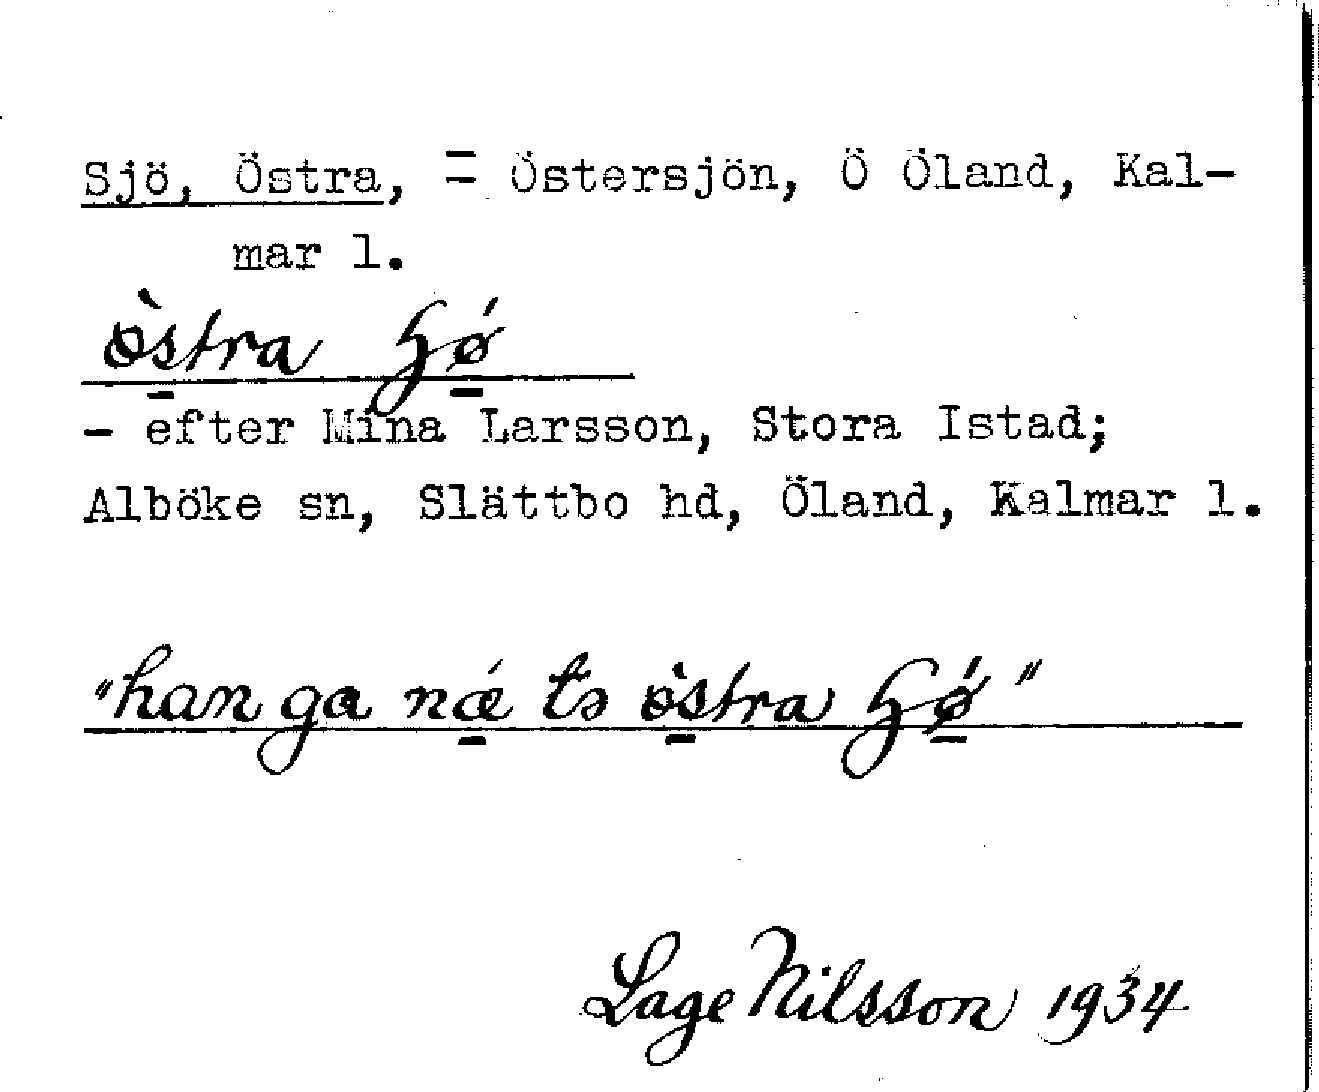 Sjö, Östra, = Östersjön, Ö Öland, Kal-
mar l.
östra ɧø
- efter Mina Larsson, Stora Istad;
Alböke sn, Slättbo hd, Öland, Kalmar l.
"han ga næ tə östra ɧø"
Lage Nilsson 1934